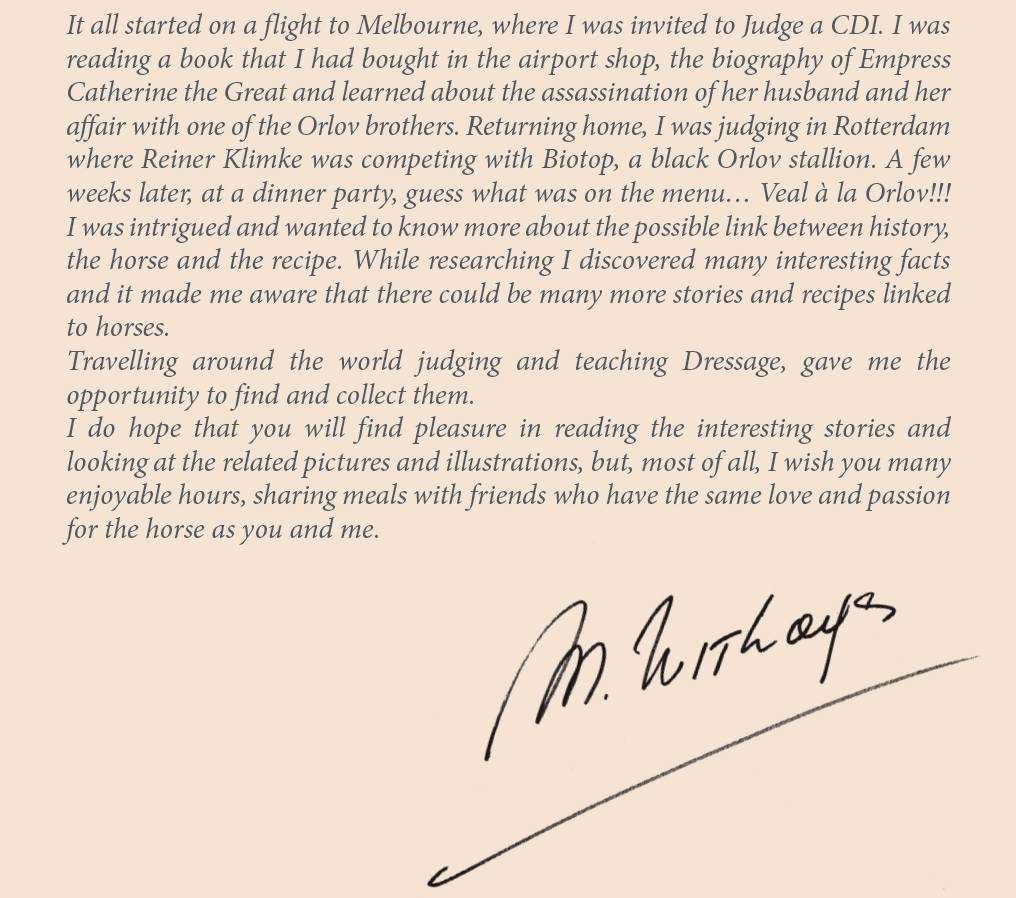 It all started on a flight to Melbourne, where I was invited to Judge a CDI. I was
reading a book that I had bought in the airport shop, the biography of Empress
Catherine the Great and learned about the assassination of her husband and her
affair with one of the Orlov brothers. Returning home, I was judging in Rotterdam
where Reiner Klimke was competing with Biotop, a black Orlov stallion. A few
weeks later, at a dinner party, guess what was on the menu… Veal à la Orlov!!!
I was intrigued and wanted to know more about the possible link between history,
the horse and the recipe. While researching I discovered many interesting facts
and it made me aware that there could be many more stories and recipes linked
to horses.
Travelling around the world judging and teaching Dressage, gave me the
opportunity to find and collect them.
I do hope that you will find pleasure in reading the interesting stories and
looking at the related pictures and illustrations, but, most of all, I wish you many
enjoyable hours, sharing meals with friends who have the same love and passion
for the horse as you and me.
M. Withages